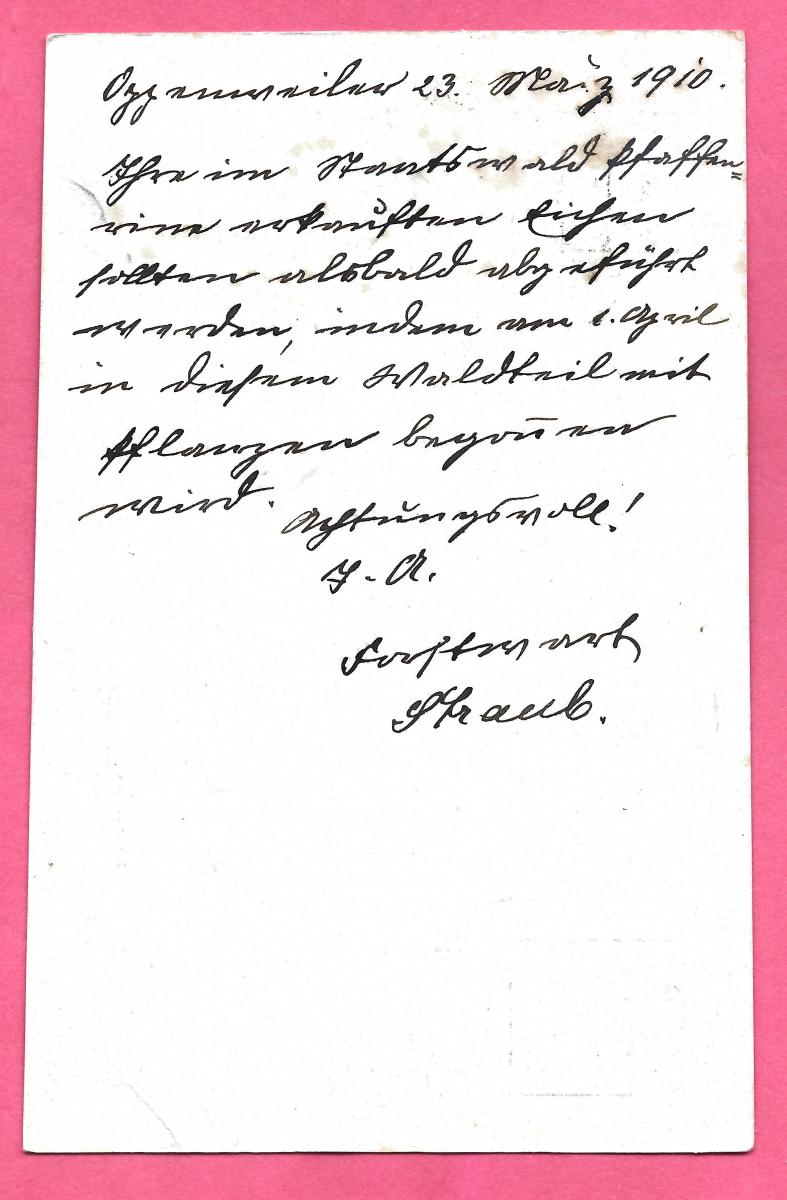 Oppenweiler 23. März 1910.
Ihre im Staatswald Pfaffen=
rine erkauften Eichen
sollten alsbald abgeführt
werden, indem am 1. April
in diesem Waldteil mit
Pflanzen begon̄en
wird.
Achtungsvoll!
J. A.
Forstwart
Straub.